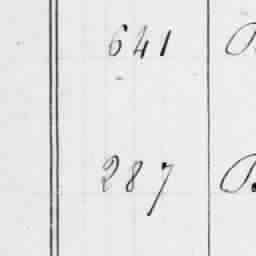 641
287